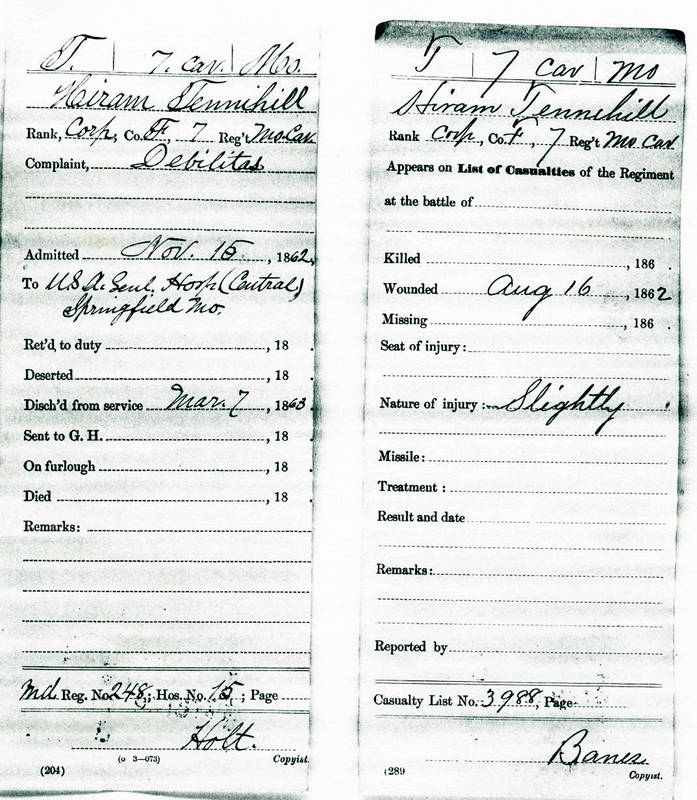 T. | 7. Cav. | Mo.
Hiram Tennihill
Rank, Corp; Co. F, 7 Reg't Mo Cav
Complaint, Debilitas
Admitted Nov. 15, 1862,
To U.S.A. Genl. Hosp (Central)
Springfield Mo.
Ret'd, to duty , 18 .
Deserted , 18 .
Disch'd from service Mar. 7, 1863.
Sent to G. H. , 18 .
On furlough , 18 .
Died , 18
Remarks:
Md. Reg. No. 248; Hos. No. 15; Page
Holt.
(o 3—073) Copyist.
(204)
T | 7 Cav | Mo
Hiram Tennihill
Rank Corp., Co. F, 7 Reg't Mo Cav
Appears on List of Casualties of the Regiment
at the battle of
Killed , 186 .
Wounded Aug 16, 1862
Missing , 186 .
Seat of injury:
Nature of injury: Slightly
Missile:
Treatment :
Result and date
Remarks:
Reported by
Casualty List No. 3988, Page
Copyist.
(289